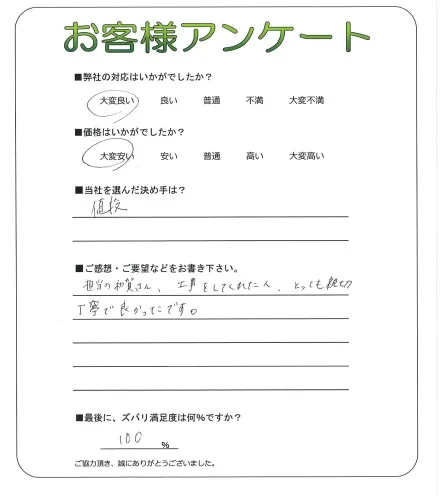 お客様アンケート
■弊社の対応はいかがでしたか？
大変良い 良い 普通 不満 大変不満
■価格はいかがでしたか？
大変安い 安い 普通 高い 大変高い
■当社を選んだ決め手は？
値段
■ご感想・ご要望などをお書き下さい。
担当の和賀さん、工事をしてくれた人、とっても親切
丁寧で良かったです。
■最後に、ズバリ満足度は何％ですか？
100 ％
ご協力頂き、誠にありがとうございました。